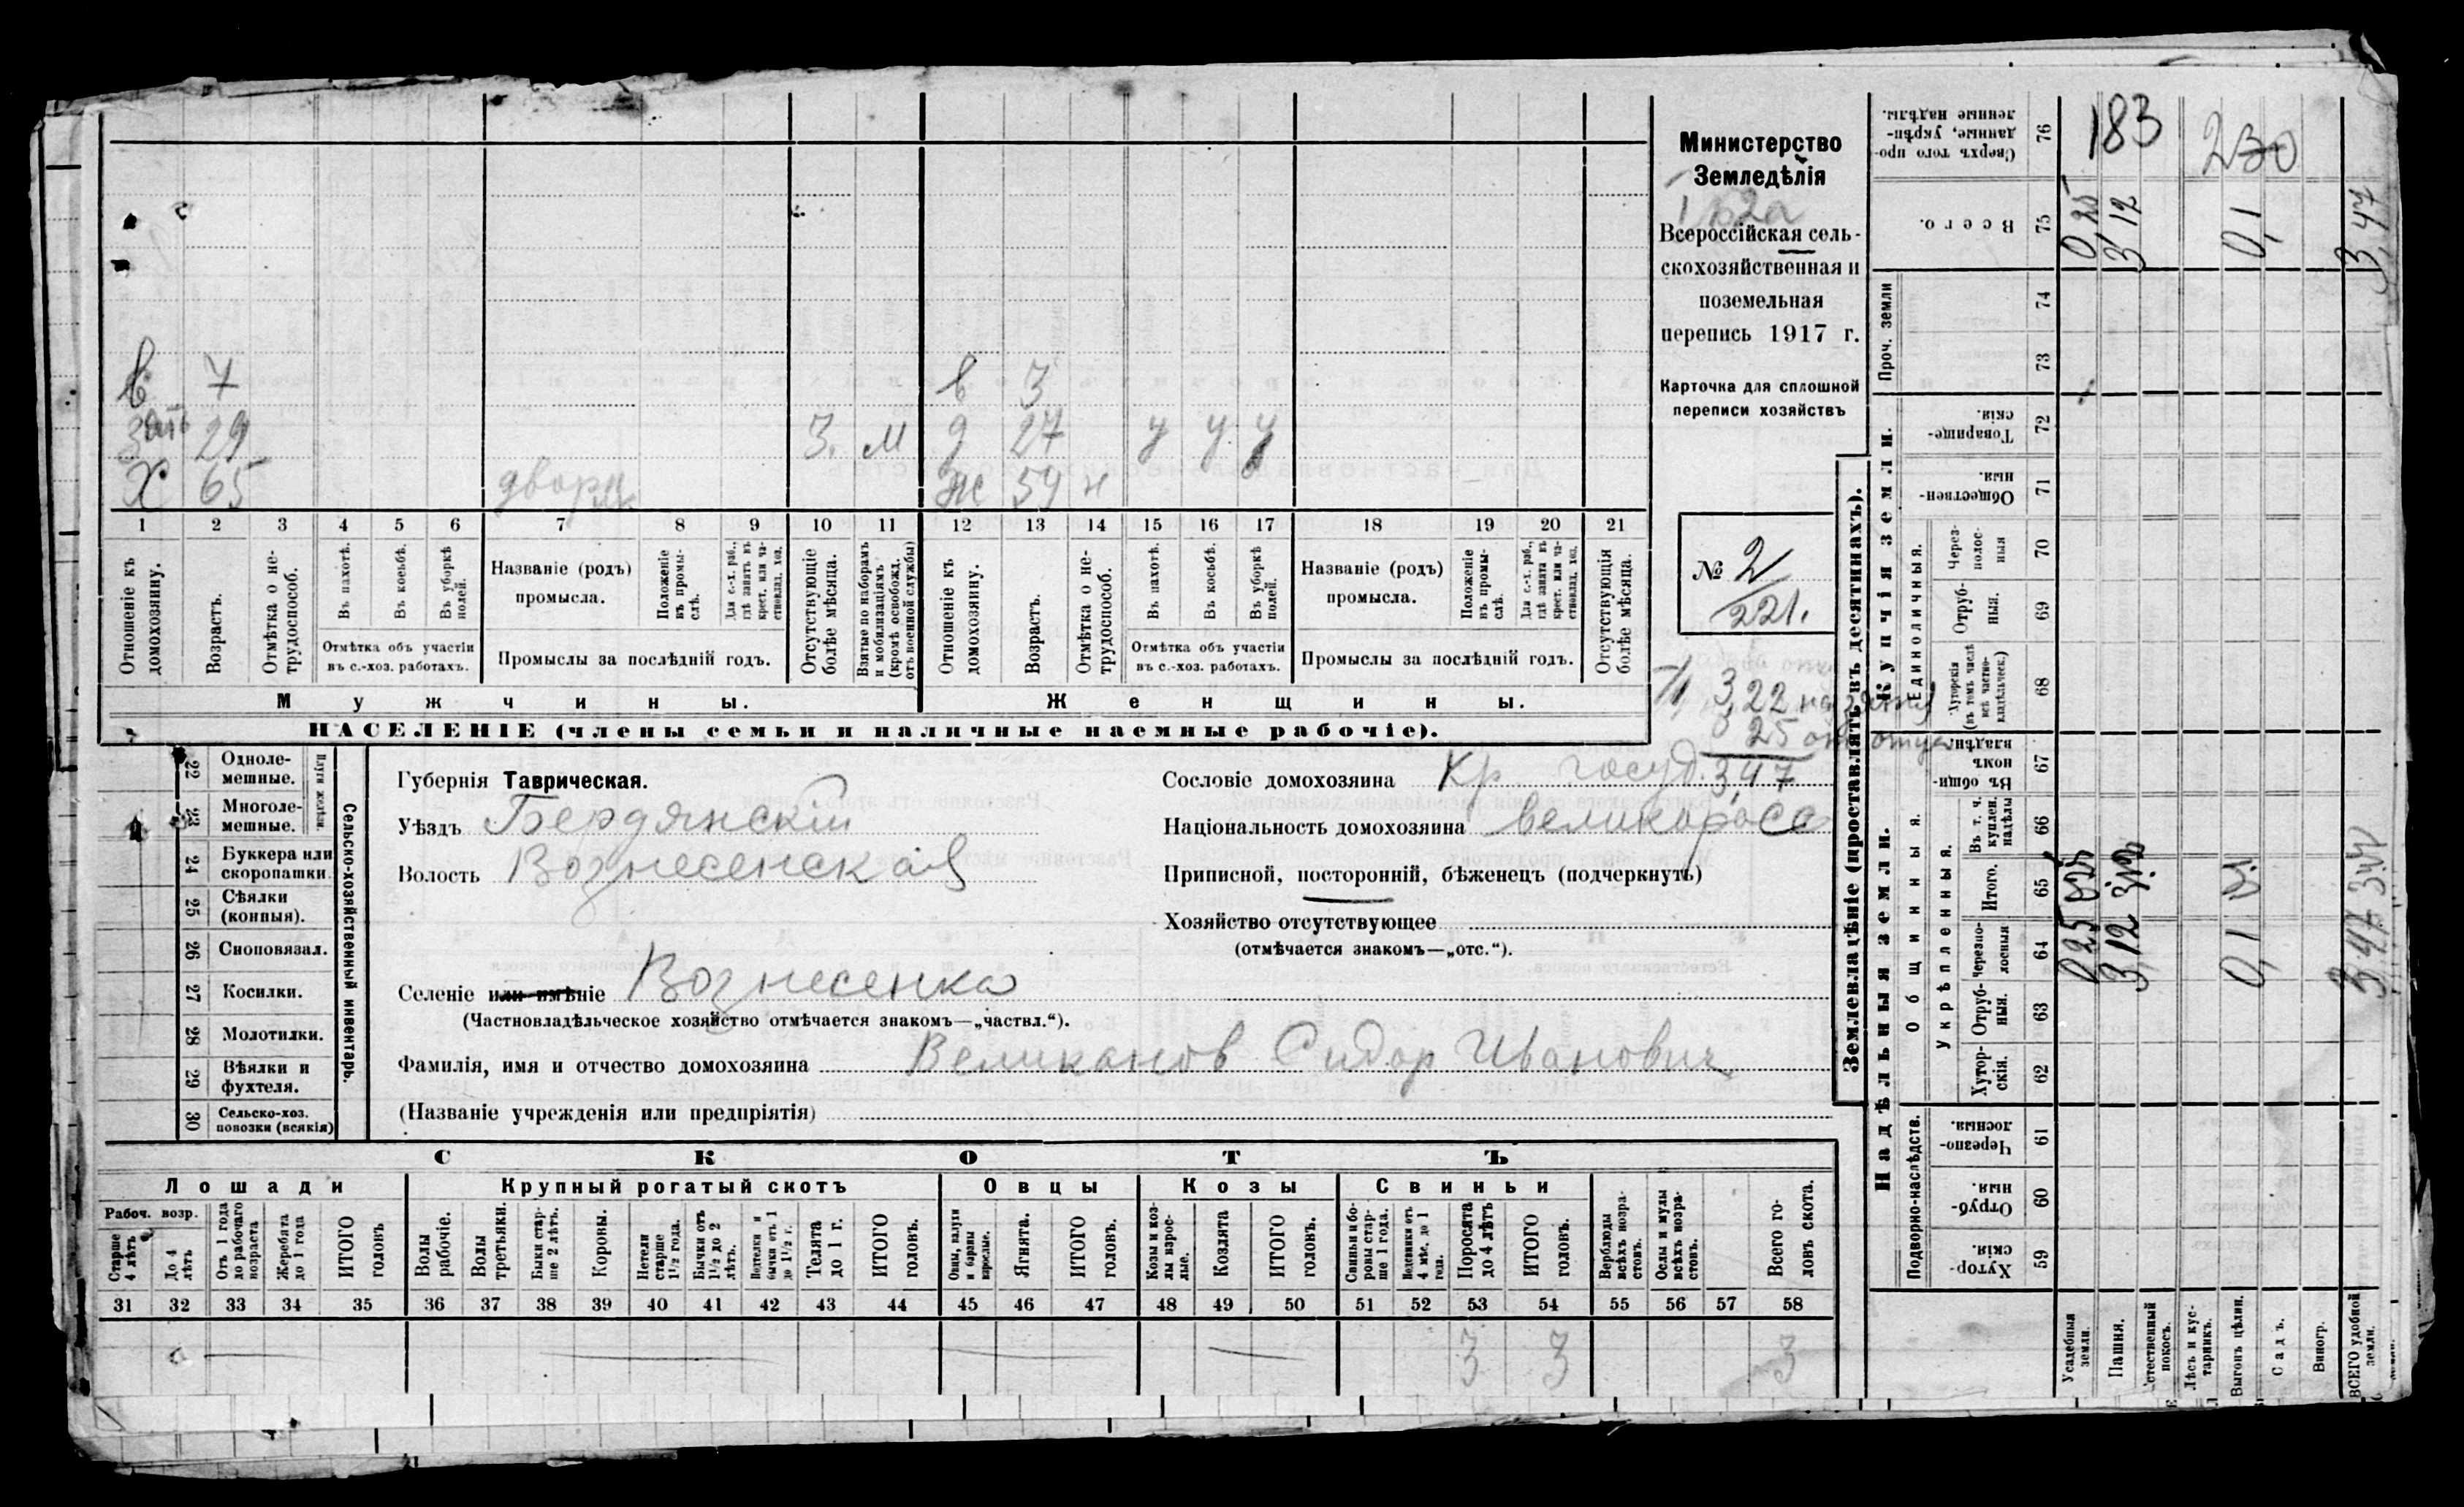 Министерство
Земледѣлія
Всероссійская сель-
скохозяйственная и
поземельная
перепись 1917 г.
Карточка для сплошной
переписи хозяйствъ
№ 2/221.
3,22
25
3,47
в 7 в 3
Зять 29 З. м д 27 у у у
Х 65 дворн. ж 54 н
1 2 3 4 5 6 7 8 9 10 11 12 13 14 15 16 17 18 19 20 21
Отношеніе къ домохозяину.
Возрастъ.
Отмѣтка о не-трудоспособ.
Въ пахотѣ.
Въ косьбѣ.
Въ уборкѣ полей.
Отмѣтка объ участіи
въ с.-хоз. работахъ.
Названіе (родъ)
промысла.
Положеніе въ промы-слѣ.
Для с.-х. раб., гдѣ занятъ въ крест. или ча-стновлад. хоз.
Промыслы за послѣдній годъ.
Отсутствующіе болѣе мѣсяца.
Взятые по наборамъ и мобилизаціямъ (кромѣ освобожд. отъ военной службы)
Отношеніе къ домохозяину.
Возрастъ.
Отмѣтка о не-трудоспособ.
Въ пахотѣ.
Въ косьбѣ.
Въ уборкѣ полей.
Отмѣтка объ участіи
въ с.-хоз. работахъ.
Названіе (родъ)
промысла.
Положеніе въ промы-слѣ.
Для с.-х. раб., гдѣ занята въ крест. или ча-стновлад. хоз.
Промыслы за послѣдній годъ.
Отсутствующія болѣе мѣсяца.
Мужчины. Женщины.
НАСЕЛЕНІЕ (члены семьи и наличные наемные рабочіе).
Сельско-хозяйственный инвентарь.
Плуги желѣзн.
22 Одноле-мешные.
23 Многоле-мешные.
24 Буккера или скоропашки.
25 Сѣялки (конныя).
26 Сноповязал.
27 Косилки.
28 Молотилки.
29 Вѣялки и фухтеля.
30 Сельско-хоз. повозки (всякія)
Губернія Таврическая.
Уѣздъ Бердянскій
Волость Вознесенская
Селеніе или имѣніе Вознесенка
(Частновладѣльческое хозяйство отмѣчается знакомъ—„частвл.“).
Фамилія, имя и отчество домохозяина Великановъ Сидор Иванович
(Названіе учрежденія или предпріятія)
Сословіе домохозяина Кр госуд.
Національность домохозяина великоросс
Приписной, посторонній, бѣженецъ (подчеркнуть)
Хозяйство отсутствующее
(отмѣчается знакомъ—„отс.“).
СКОТЪ
Лошади Крупный рогатый скотъ Овцы Козы Свиньи
Рабоч. возр.
Старше 4 лѣтъ
До 4 лѣтъ
Отъ 1 года до рабочаго возраста
Жеребята до 1 года
ИТОГО головъ
Волы рабочіе.
Волы третьяки.
Быки стар-ше 2 лѣтъ.
Коровы.
Нетели старше 1½ года.
Бычки отъ 1½ до 2 лѣтъ.
Подтелки и бычки отъ 1 до 1½ г.
Телята до 1 г.
ИТОГО головъ.
Овцы, валухи и бараны взрослые.
Ягнята.
ИТОГО головъ.
Козы и коз-лы взрос-лые.
Козлята
ИТОГО головъ.
Свиньи и бо-ровы стар-ше 1 года.
Подсвинки отъ 4 мѣс. до 1 года.
Поросята до 4 лѣтъ
ИТОГО головъ.
Верблюды всѣхъ возра-стовъ.
Ослы и мулы всѣхъ возра-стовъ.
Всего го-ловъ скота.
31 32 33 34 35 36 37 38 39 40 41 42 43 44 45 46 47 48 49 50 51 52 53 54 55 56 57 58
3 3 3
Землевладѣніе (проставлять въ десятинахъ).
Надѣльныя земли.
Купчія земли.
Проч. земли
Подворно-наслѣдств.
Общинныя.
Укрѣпленныя.
Единоличныя.
59 Хутор-скія.
60 Отруб-ныя.
61 Черезпо-лосныя.
62 Хутор-скія.
63 Отруб-ныя.
64 Черезпо-лосныя
65 Итого.
66 Въ т. ч. куплен. надѣлы
67 Въ общи-номъ владѣн.
68 Хуторскія (въ томъ числѣ всѣ частно-владѣльческ.)
69 Отруб-ныя.
70 Через-полос-ныя
71 Обществен-ныя.
72 Товарище-скія.
73
74
75 Всего.
76 Сверхъ того про-данные, укрѣп-ленные надѣлы.
Усадебныя земли.
Пашня.
Естественный покосъ.
Лѣсъ и кус-тарникъ.
Выгонъ цѣлин.
Садъ.
Виногр.
ВСЕГО удобной земли.
0,25 3,12 0,1 3,47
0,25 3,12 0,1 3,47
183 230